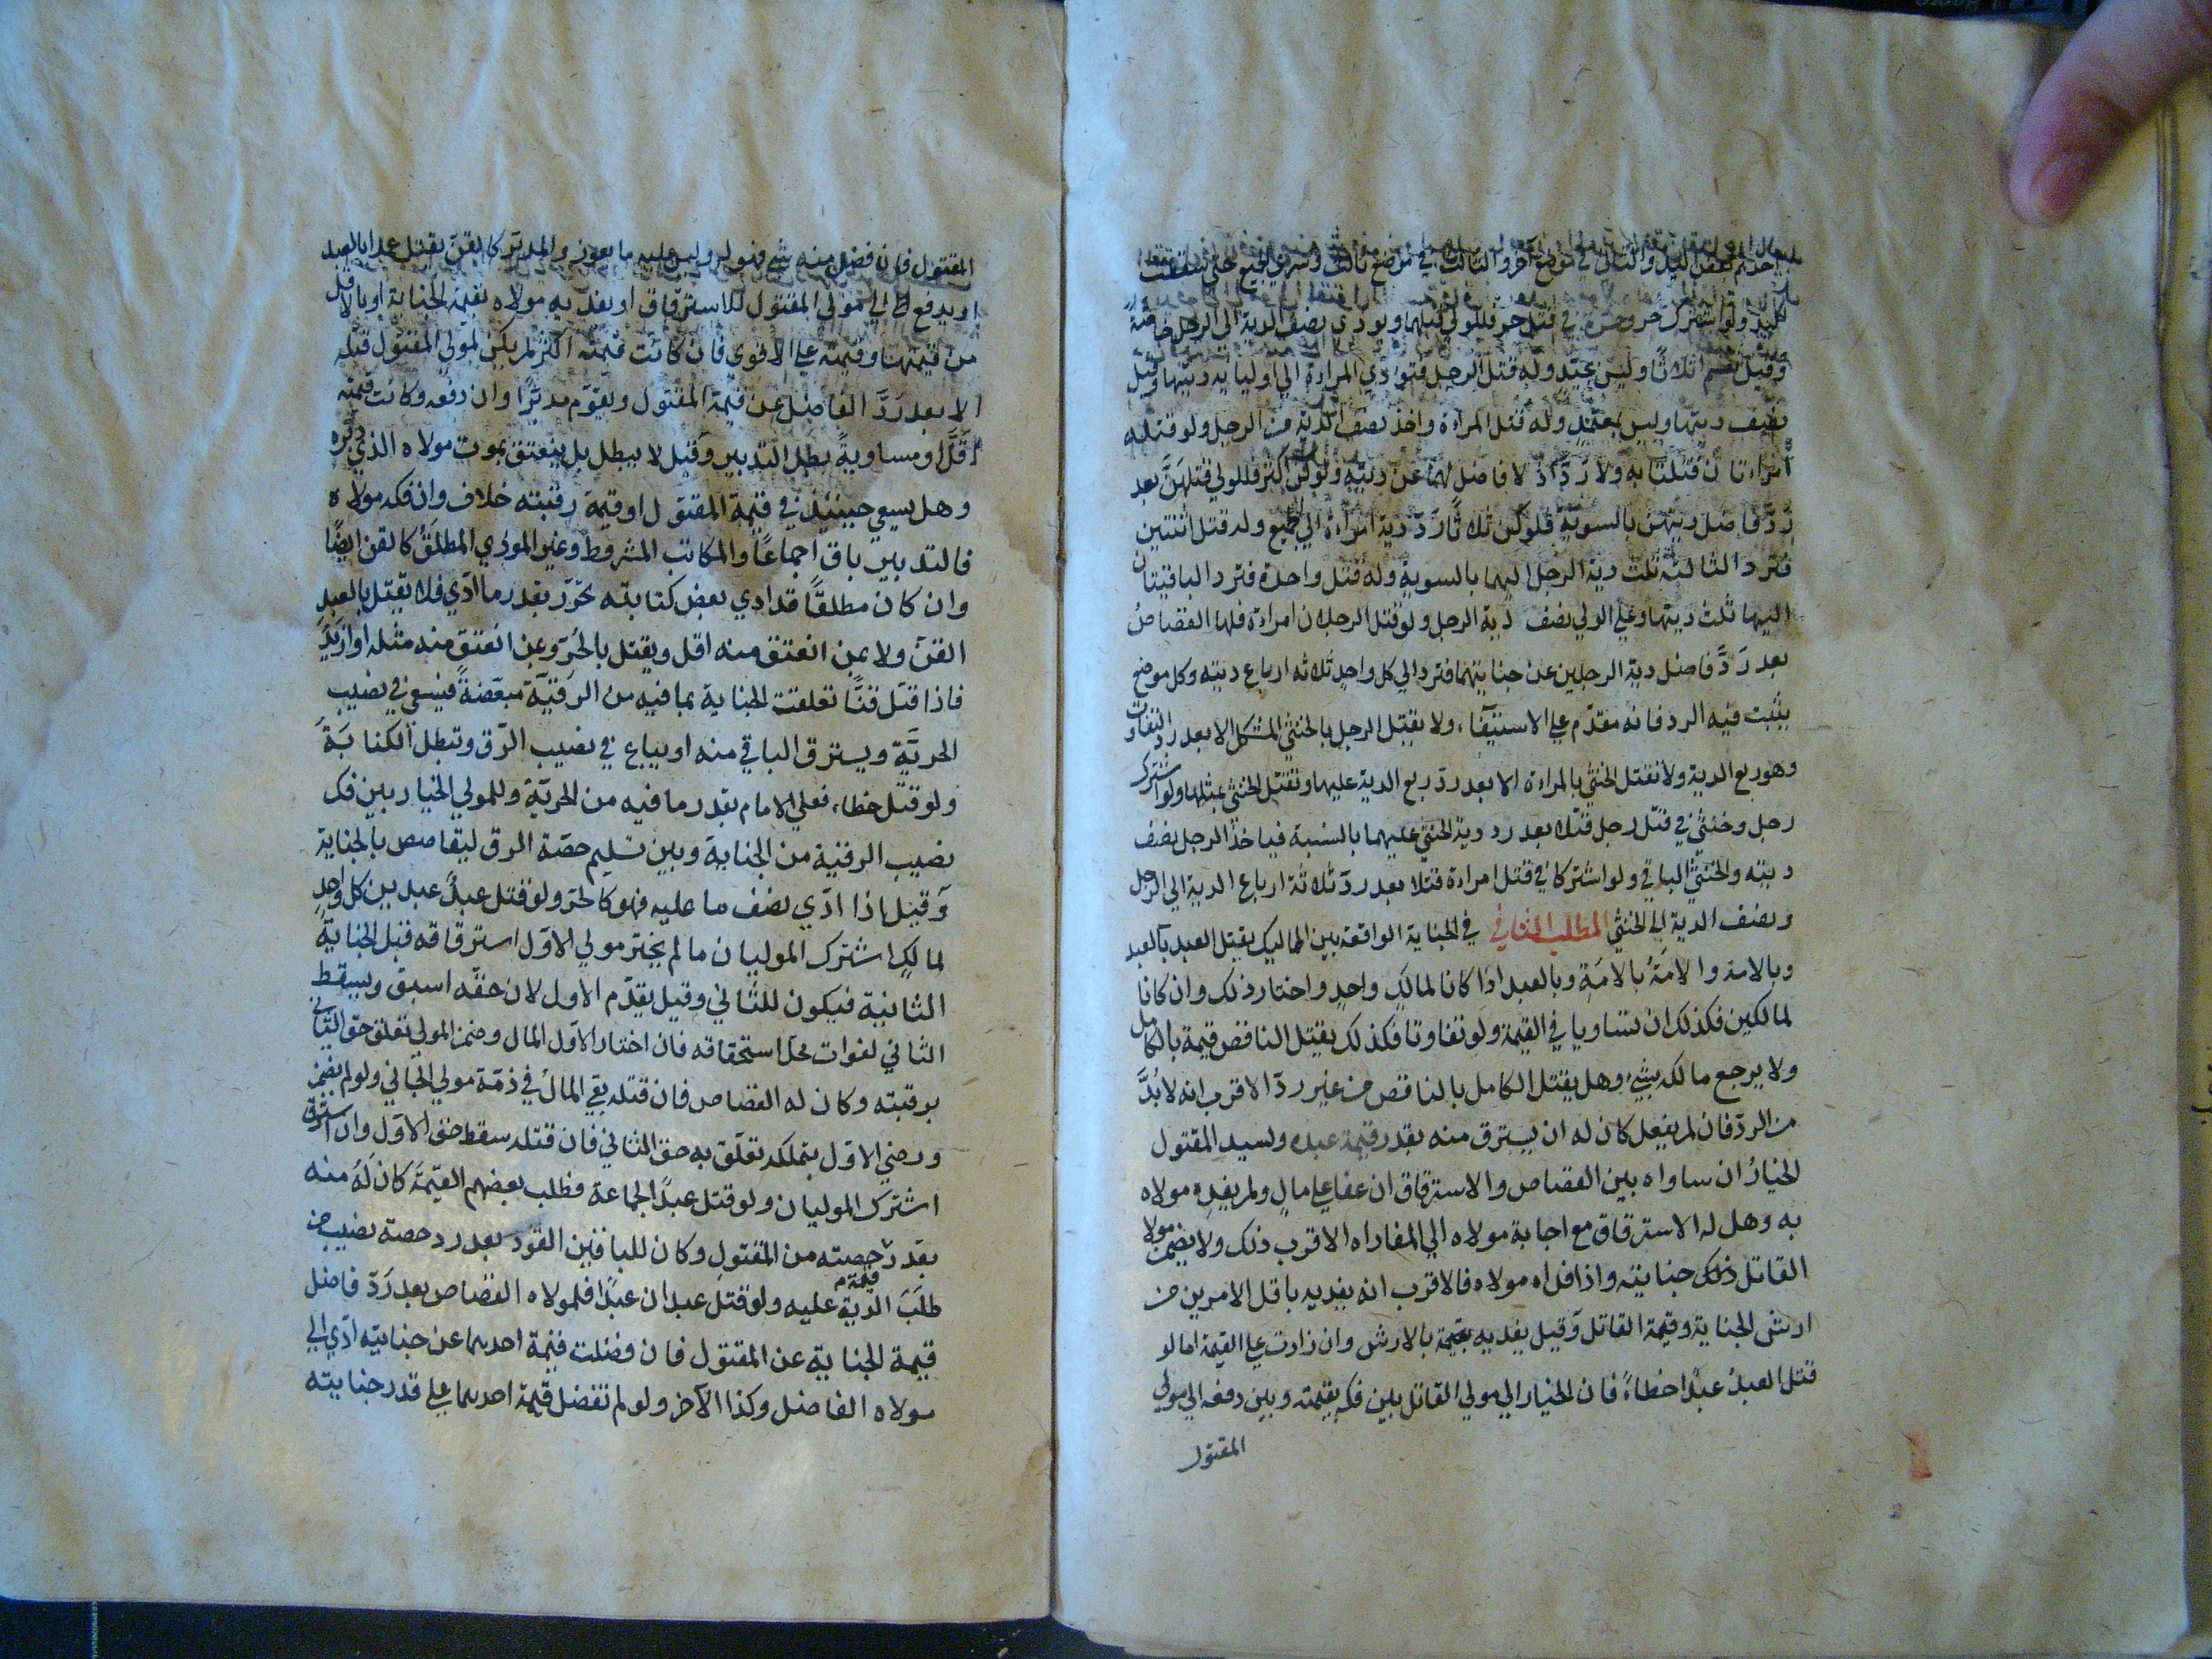 احدهم بعض اليد والثاني في موضع آخر والثالث في موضع ثالث وسري الجميع حتى سقطت
اليد ولو اشترك حر وحرة في قتل حر فللولي قتلهما ويودي نصف الدية الى الرجل خاصّةً
وقيل تقسم اثلاثًا وليس بجيّدٍ وله قتل الرجل فتودّي المراءة الي اوليائه ديتها وقيل
نصف ديتها وليس بمعتمدٍ وله قتل المراءة واخذ نصف الدّية من الرجل ولو قتلته
امراءتان قتلتا به ولا ردّ اذ لا فاضل لهما عن ديته ولو كن اكثر فللولي قتلهنّ بعد
ردّ فاضل ديتهن بالسويّة فلو كن ثلاثًا ردّ دية امراءة الي الجميع وله قتل اثنتين
فترد الثالثه ثلث دية الرجل اليهما بالسوية وله قتل واحدة فترد الباقيتان
اليها ثلث ديتها وعلي الولي نصف دية الرجل ولو قتل الرجلان امراءة فلها القصاصُ
بعد ردّ فاضل دية الرجلين عن جنايتهما فترد الي كل واحدٍ ثلاثه ارباع ديته وكل موضع
يثبت فيه الرد فانه مقدّم علي الاستيفاء، ولا يقتل الرجل بالخنثي المشكل الا بعد رد التفاوت
وهو ربع الدية ولا تقتل الخنثي بالمراءة الا بعد ردّ ربع الدية عليها وتقتل الخنثي بمثلها ولو اشترك
رجل وخنثي في قتل رجل قتلا بعد رد دية الخنثي عليهما بالنسبة فياخذ الرجل نصف
ديته والخنثي الباقي ولو اشتركا في قتل امراءة قتلا بعد ردّ ثلاثة ارباع الدية الي الرجل
ونصف الدية الي الخنثي المطلب الثاني في الجناية الواقعة بين المماليك يقتل العبد بالعبد
وبالامة والامَةُ بالامَةِ وبالعبد اذا كانا لمالكٍ واحدٍ واختار ذلك وان كانا
لمالكين فكذلك ان تساويا في القيمة ولو تفاوتا فكذلك يقتل الناقص قيمة بالكامل
ولا يرجع مالكه بشيء وهل يقتل الكامل بالناقص من غير ردّ الاقرب انه لا بُدَّ
من الردّ فان لم يفعل كان له ان يسترق منه بقدر قيمة عبده ولسيد المقتول
الخيارُ ان ساواه بين القصاص والاسترقاق ان عفا علي مالٍ ولم يفدِه مولاه
به وهل له الاسترقاق مع اجابة مولاه الي المفاداه الاقرب ذلك ولا يضمن مولا
القاتل ذلك جنايته واذا فداه مولاه فالاقرب انه يفديه باقل الامرين من
ارش الجناية وقيمة القاتل وقيل يفديه بالارش وان زادت علي القيمة اما لو
قتل العبدُ عبدًا خطاءً فان الخيار الي مولي القاتل بين فكه بقيمته وبين دفعه الي مولي
المقتول
المقتول فان فضل منه شي فهو له وليس عليه ما يعوز والمدبّر كالقنّ يقتل عمدا بالعبد
او يدفع الي مولي المقتول للاسترقاق او يفديه مولاه بقيمة الجناية او بالاقل
من قيمتها وقيمته علي الاقوي فان كانت قيمته اكثر لم يكن لمولي المقتول قتله
الا بعد ردّ الفاضل عن قيمة المقتول ويقوّم مدبّرًا وان دفعه وكانت قيمته
اقلّ او مساويةً بطل التدبير وقيل لا يبطل بل ينعتق بموت مولاه الذي دبّره
وهل يسعي حينئذٍ في قيمة المقتول او قيمة رقبته خلاف وان فكه مولاه
فالتدبير باق اجماعًا والمكاتب المشروط وغير المودي المطلقُ كالقن ايضًا
وان كان مطلقًا قد ادي بعض كتابته تحرّر بقدر ما ادّي فلا يقتل بالعبدِ
القنّ ولا بمن انعتق منه اقل ويقتل بالحُرّ وبمن انعتق منه مثله او ازيدُ
فاذا قتل قنًّا تعلقت الجناية بما فيه من الرقيّة مبعّضةً فيسعي في نصيب
الحريَّة ويسترق الباقي منه او يباع في نصيب الرّق وتبطل الكتابَةُ
ولو قتل خطاء، فعلي الامام بقدر ما فيه من الحريّة وللمولي الخيار بين فك
نصيب الرقية من الجناية وبين تسليم حصّة الرق ليقاصص بالجناية
وقيل اذا ادّي نصف ما عليه فهو كالحرّ ولو قتل عبدٌ عبدين كل واحدٍ
لمالكٍ اشترك الموليان ما لم يختر مولي الاوّل استرقاقه قبل الجنايةِ
الثانية فيكون للثاني وقيل يقدّم الاول لان حقّه اسبق ويسقط
الثاني لفوات محل استحقاقه فان اختار الاوّل المال وضمن المولي تعلق حق الثاني
برقبته وكان له القصاص فان قتله بقي المالُ في ذمّة مولي الجاني ولو لم يضمن
ورضي الاوّل بتملكه تعلّق به حق الثاني فان قتله سقط حق الاوّل وان استرق
اشترك الموليان ولو قتل عبدًا لجماعة فطلب بعضهم القيمَة كان لهُ منه
بقدر حصته من المقتول وكان للباقين القوَد بعد رد حصته نصيب من
طلَبَ الدّية قيمة م عليه ولو قتل عبدان عبدًا فلمولاه القصاص بعد ردّ فاضل
قيمة الجناية عن المقتول فان فضلت قيمة احدهما عن جنايته ادّي الي
مولاه الفاضل وكذا الآخر ولو لم تفضل قيمة احدهما علي قدر جنايته